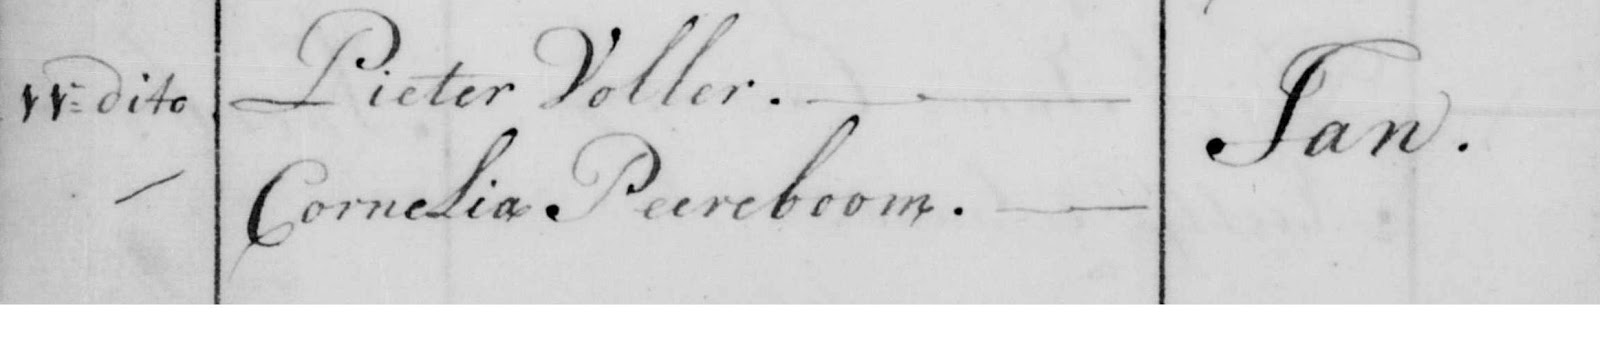 11=dito Pieter Voller. Jan.
Cornelia Peereboom.